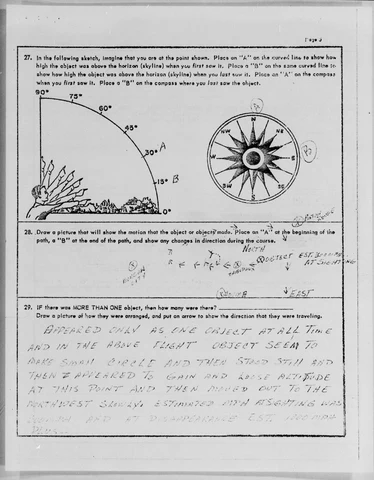 Page 2
27. In the following sketch, imagine that you are at the point shown. Place an "A" on the curved line to show how
high the object was above the horizon (skyline) when you first saw it. Place a "B" on the same curved line to
show how high the object was above the horizon (skyline) when you last saw it. Place an "A" on the compass
when you first saw it. Place a "B" on the compass where you last saw the object.
90°
75°
60°
45°
30° A
15° B
0°
N
NE
E
SE
S
SW
W
NW
28. Draw a picture that will show the motion that the object or objects made. Place an "A" at the beginning of the
path, a "B" at the end of the path, and show any changes in direction during the course.
NORTH
OBJECT EST.
AT SIGHTING
EAST
29. IF there was MORE THAN ONE object, then how many were there?
Draw a picture of how they were arranged, and put an arrow to show the direction that they were traveling.
APPEARED ONLY AS ONE OBJECT AT ALL TIME
AND IN THE ABOVE FLIGHT OBJECT SEEM TO
MAKE SMALL CIRCLE AND THEN STOOD STILL AND
THEN APPEARED TO GAIN AND LOOSE ALTITUDE
AT THIS POINT AND THEN MOVED OUT TO THE
NORTHWEST SLOWLY. ESTIMATED AT SIGHTING WAS
AND AT DISAPPEARANCE EST.